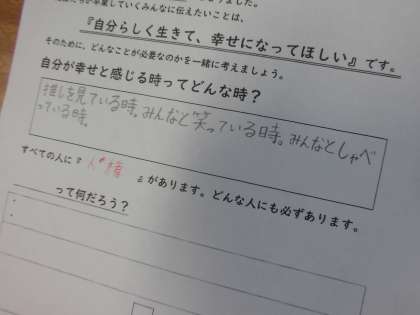 なりました。
卒業していくみんなに伝えたいことは、
『自分らしく生きて、幸せになってほしい』です。
そのために、どんなことが必要なのかを一緒に考えましょう。
自分が幸せと感じる時ってどんな時？
推しを見ている時。みんなと笑っている時。みんなとしゃべ
っている時。
すべての人に『人権』があります。どんな人にも必ずあります。
って何だろう？